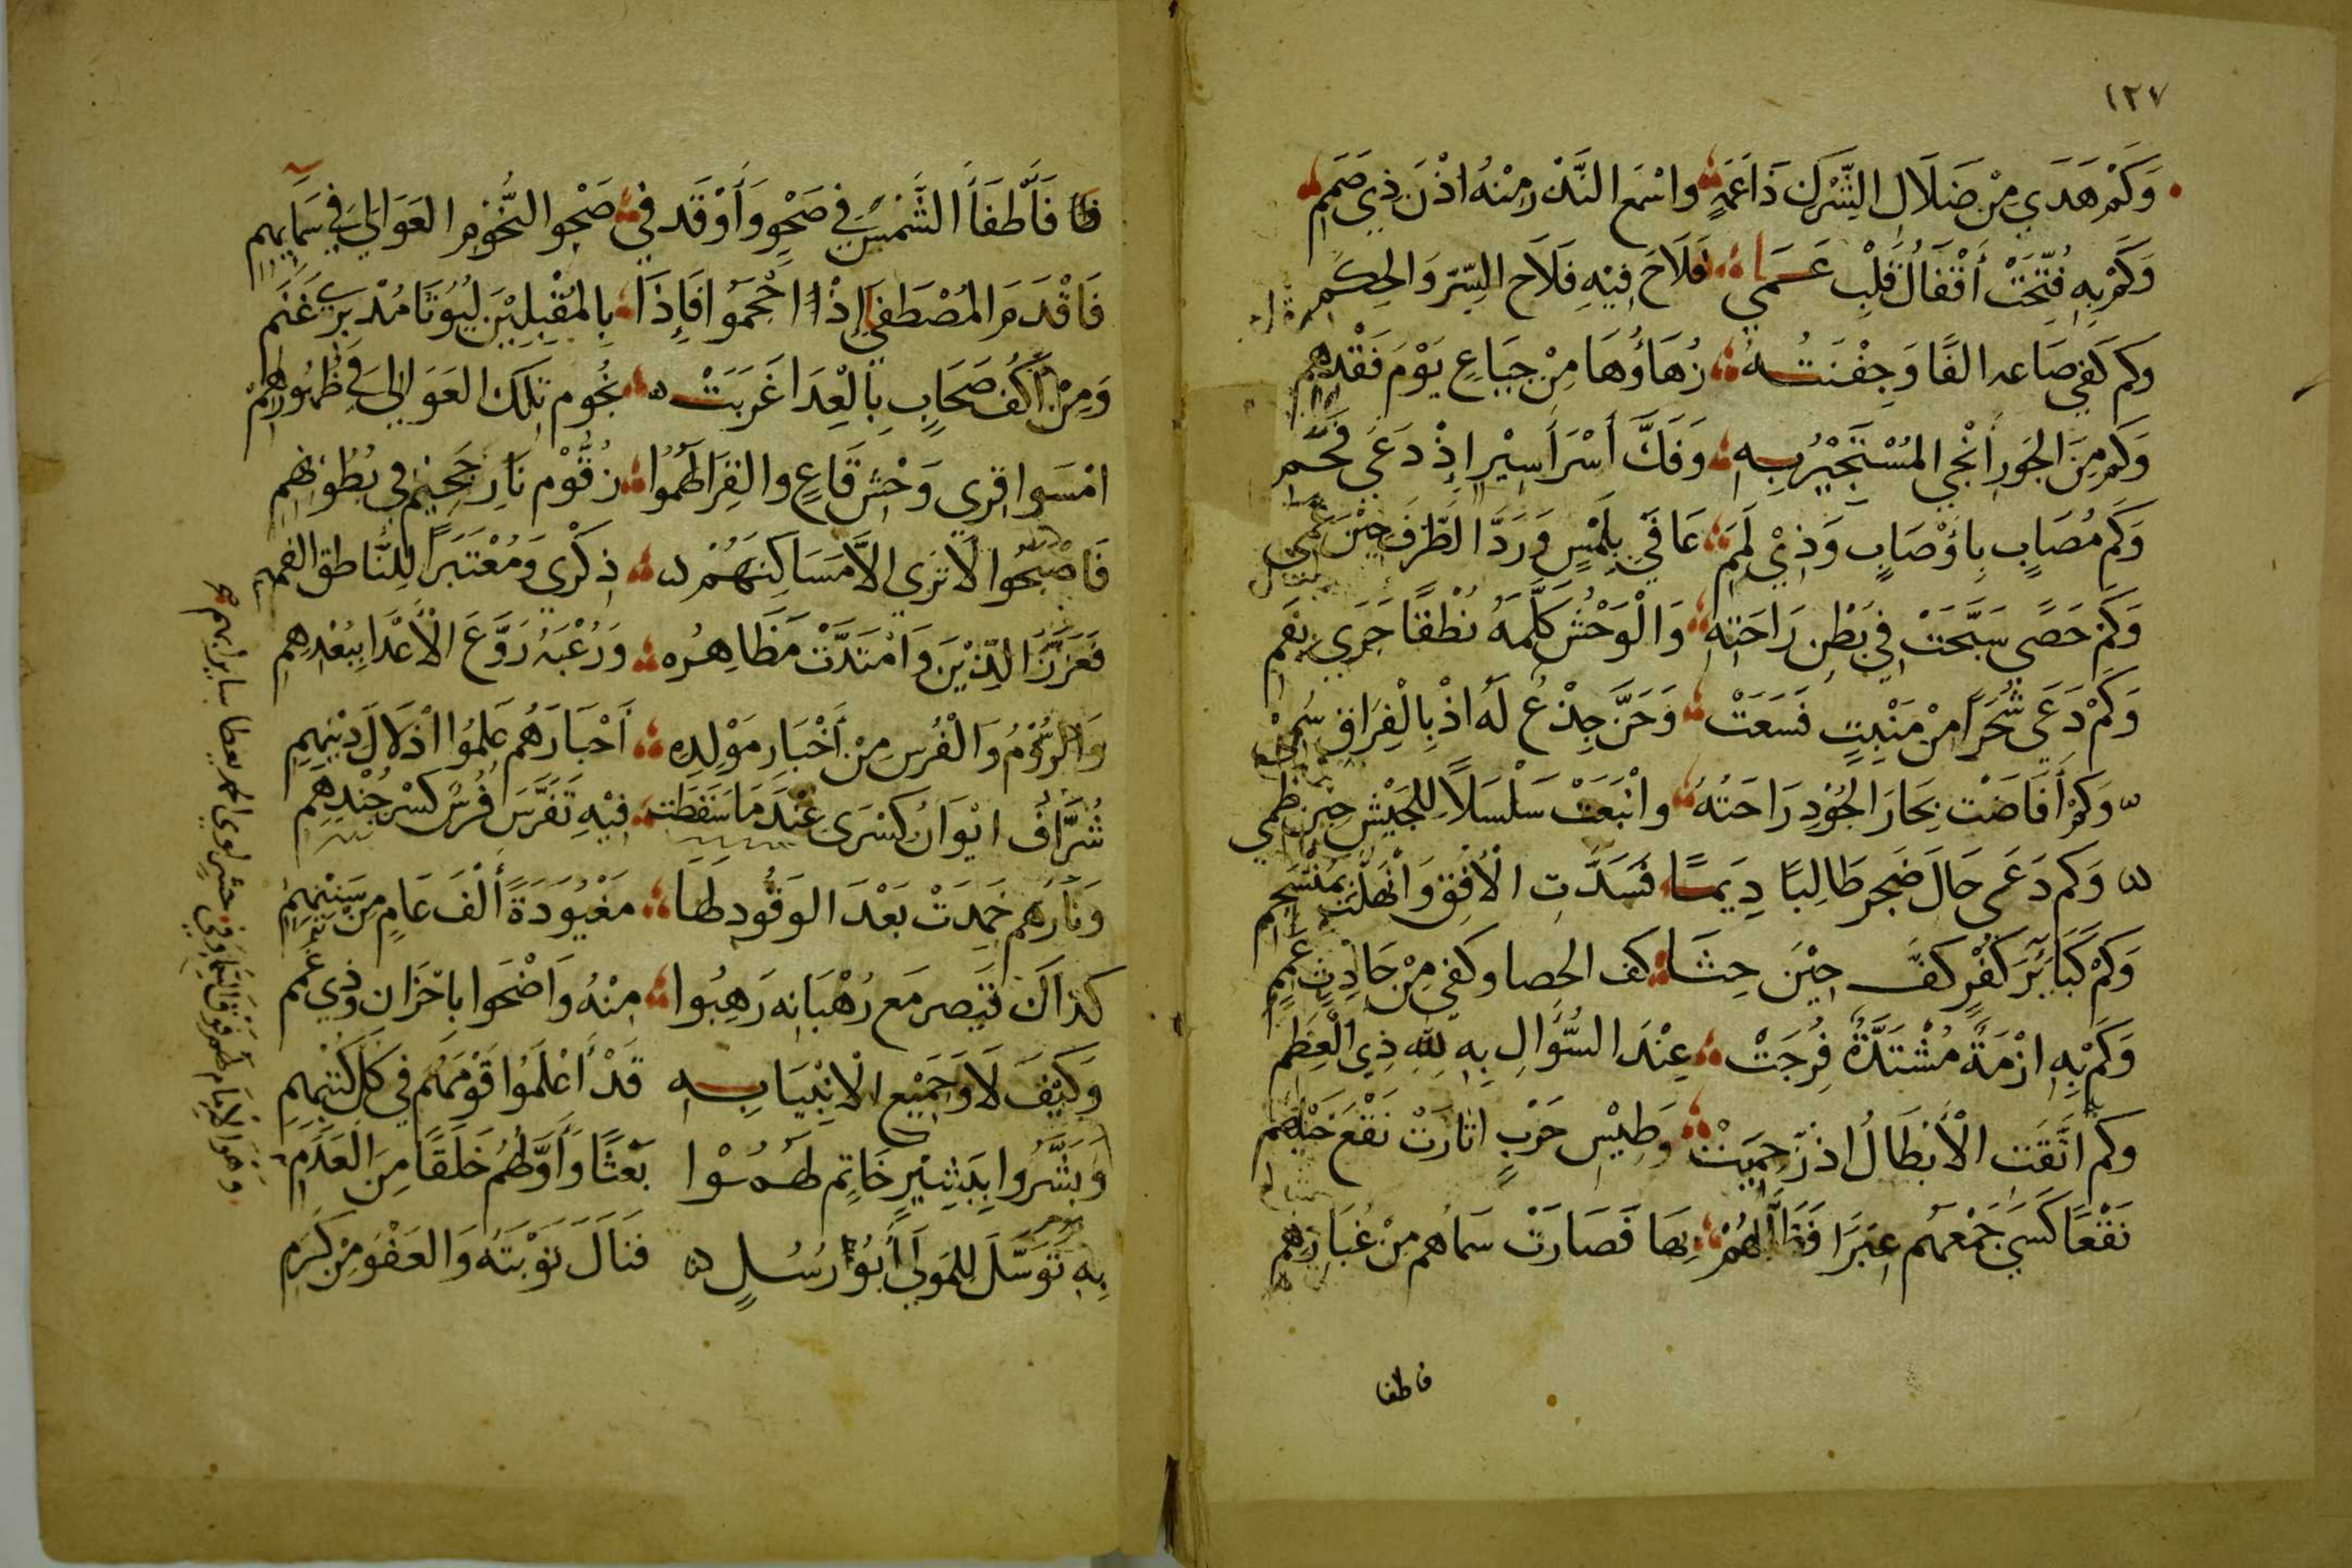 ١٢٧
وَكَمْ هَدَي مِنْ ضَلَالِ الشِّرْكِ ذَا عَمَهٍ واسْمع النَّذْر مِنْهُ اذْنَ ذِي صَمَم
وَكَمْ بِهِ فُتِّحَتْ أَقْفَالُ قَلْبِ عَمَي فَلَاحَ فِيْهِ فَلَاح السِّرّ وَالحِكَم
وكم كفي صَاعه الفًا وَجِفْنَتُهُ زُهَاؤُهَا مِنْ جِيَاعٍ يَوْمَ فَقْدِهِم
وَكَم مِنَ الجَورِ أَنْجي المُسْتَجْيْرُ بِهِ وَفَكَّ أَسْرَ أَسِيْرٍ إِذْ دَعَي
وَكَم مُصَابٍ بِاَوْصَابٍ وَذِيْ لَمَمٍ عَافَي بِلَمْسٍ وَرَدَّ الطَّرْفَ حِيْنَ عَمي
وَكَمْ حَصًي سَبَّحَتْ فِي بَطْنِ رَاحَتِهِ وَالْوَحْشُ كَلَّمَهُ نُطْقًا جَرَي بِفَم
وَكَمْ دَعَي شَجَرًا مِنْ مَنْبِتٍ فَسَعَتْ وَحَنَّ جِذْعٌ لَهُ اذْ بِالْفِرَاقِ
وَكَمْ أَفَاضَتْ بِحَارَ الجُوْدِ رَاحَتُهُ وانْبَعَتْ سَلْسَلًا لِلجَيْشِ حِيْنَ ظمي
وَكم دَعَي حَالَ ضَجْرٍ طَالِبًا دِيَمًا فَسَدَّتِ الْأُفْقِ وَانْهَلَّتْ بِمُنْسَجِم
وَكَمْ كَبَائِرَ كَفْرٍ كَفَّ حِيْنَ حِثَا كف الحصا وكفي مِنْ حَادِثٍ عَمَمٍ
وَكَمْ بِهِ ازْمَةً مُشْتَدَّةٌ فُرِجَتْ عِنْدَ السُّؤَالِ بِهِ لِلّهِ ذِي الْعِظَم
وكم اتَّقَتِ الْأَبْطَالُ اذْ حَمِيَتْ وَطِيْسِ حَرْبٍ اثارَتْ نَقْعَ خَيْلِهم
نَقْعًا كَسَي جَمْعَهُم عِبَرًا فَظَلَّ لَهُمْ بِهَا فَصَارَتْ سَمَاهُم مِنْ غُبَارِهِم
فاطفا
فَأَطْفَأَ الشَّمْسَ فِي صَحْوٍ وَأَوْقَدَ فِي صَحْوِ النُّجُوْمِ العَوَالِيَ فِي سَمَائِهِم
فَاقْدَمَ المُصْطَفَي إِذْ احْجَمُوا فَإِذَا بِالمُقْبِلِيْنَ لُيُوثًا مُدْبِرِيْ غَنَم
وَمِنْ أَكُفِّ صَحَابٍ بِالْعِدَا غَرَبَتْ نُجُوم تِلكَ العَوَالِيَ فِي ظُهُورِهِمْ
امْسَوا قِرِي وَحْشِ قَاعٍ والقِرَا لَهُمُوا زُقُّوْم نَارِ جَحِيْم فِي بُطُوْنِهِمِ
فَاصْبَحُوا لَا تَرَي الاَّ مَسَاكِنَهُمْ ذِكْرَي وَمُعْتَبَرًا لِلنَّاطق الفهم
فَعَزَّزَ الدِّيْنَ وَامْتَدَّتْ مَظَاهِرُه وَرُعْبُهُ رَوَّعَ الْأَعْدَا بِبُعْدِهِم
وَالرُّوْمُ وَالْفُرسِ مِنْ أَخْبَارِ مَوْلِدِهِ أَحْبَارَهُم عَلِمُوا اذْلَالَ دِيْنِهِمِ
شُرَّافَ ايْوَانُ كِسْرَى عِنْدَ مَا سَقَطَت فِيْهِ تَفَرَّسَ فُرْسٌ كسْر جُنْدِهِم
وَنَارهم خَمِدَتْ بَعْدَ الوَقُودِ لَهَا مَعْبُودَةً أَلْفَ عَامٍ مِن سِنِيْهِمِ
كذاكَ قَيْصر مَع رُهْبَانِه رَهِبُوا مِنْهُ وَاضْحَوا بِاحْزَان وَذِي غمم
وَكَيْفَ لَا وَجَمِيْع الْانْبِيَا بِهِ قَدْ أَعْلَمُوا قَوْمَهُم فِي كُلِّ كُتْبِهِمِ
وَبَشَّرُوا بِبَشِيْرٍ خَاتِم لَهُمُوْا بَعْثًا وَأَوَّلهُم خَلقًا مِنَ العَدَمِ
بِهِ تَوَسَّلَ لِلمَولَي أَبُو رُسُلٍ فَنَالَ تَوْبَتَهُ وَالعَفْوَ مِنْ كَرَمِ